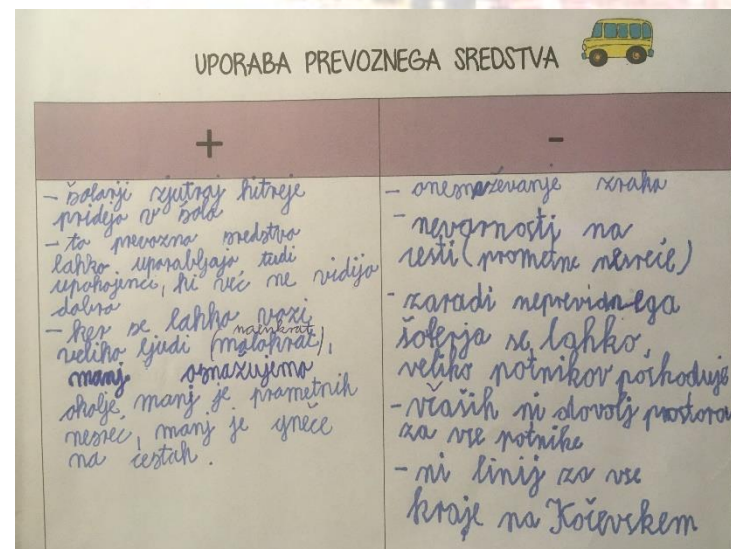 UPORABA PREVOZNEGA SREDSTVA
+
- šolarji zjutraj hitreje
pridejo v šolo
- to prevozno sredstvo
lahko uporabljajo tudi
upokojenci, ki več ne vidijo
dobro
- ker se lahko vozi
naenkrat
veliko ljudi (malokrat),
manj onažujemo
okolje, manj je prometnih
nesreč, manj je gneče
na cestah.
-
- onesnaževanje zraka
- nevarnosti na
cesti (prometne nesreče)
- zaradi neprevidnega
šoferja se lahko
veliko potnikov poškoduje
- včasih ni dovolj prostora
za vse potnike
- ni linij za vse
kraje na Kočevskem